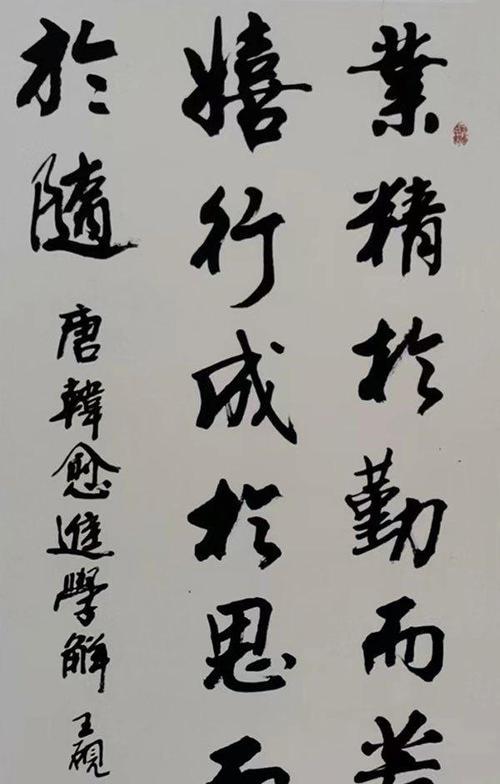 業精於勤而荒
嬉行成於思而
於隨 唐韓愈進學解 王硯